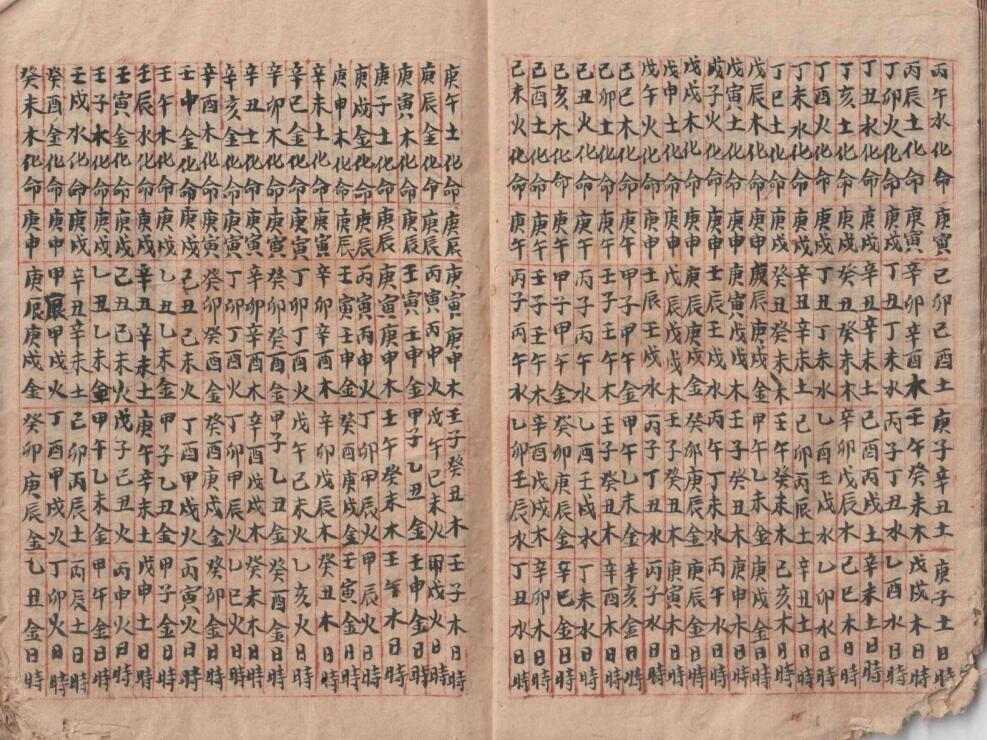 丙午水化命庚寅己卯己酉土庚子辛丑土庚子土日時
丙辰土化命庚寅辛卯辛酉木壬午癸未木戊戌木日時
丁卯火化命庚戌丁丑丁未水丙子丁丑水乙酉水日時
丁丑水化命庚戌辛丑辛未土己酉丙戌土辛未土日時
丁亥土化命庚戌癸丑癸未木辛卯戊辰木己巳木日時
丁酉火化命庚戌丁丑丁未水乙酉壬戌水乙卯水日時
丁未水化命庚戌辛丑辛未土己卯丙辰土辛丑土日時
丁巳土化命庚戌癸丑癸未木壬午癸未木己亥木日時
戊辰木化命庚申庚辰庚戌金甲午乙未金庚戌金日時
戊寅土化命庚申戊辰戊戌木壬子癸丑木庚申木日時
戊子火化命庚申壬辰壬戌水丙午丁未水丙午水日時
戊戌木化命庚申庚辰庚戌金癸卯庚辰金庚辰金日時
戊申土化命庚申戊辰戊戌木壬子癸丑木庚寅木日時
戊午火化命庚申壬辰壬戌水丙子丁丑水丙子水日時
己巳木化命庚午甲子甲午金甲午乙未金辛亥金日時
己卯土化命庚午壬子壬午木壬子癸丑木辛酉木日時
己丑火化命庚午丙子丙午水乙酉壬戌水丁未水日時
己亥木化命庚午甲子甲午金癸卯庚辰金辛巳金日時
己酉土化命庚午壬子壬午木辛酉戊戌木辛卯木日時
己未火化命庚午丙子丙午水乙卯壬辰水丁丑水日時
庚午土化命庚辰庚寅庚申木壬子癸丑木壬子木日時
庚辰金化命庚辰丙寅丙申火戊午己未火甲戌火日時
庚寅木化命庚辰壬寅壬申金甲子乙丑金壬申金日時
庚子土化命庚辰庚寅庚申木壬午癸未木壬午木日時
庚戌金化命庚辰丙寅丙申火丁卯甲辰火甲辰火日時
庚申木化命庚辰壬寅壬申金癸酉庚戌金壬寅金日時
辛未土化命庚寅辛卯辛酉木辛卯戊辰木癸丑木日時
辛巳金化命庚寅丁卯丁酉火戊午己未火乙亥火日時
辛卯木化命庚寅癸卯癸酉金甲子乙丑金癸酉金日時
辛丑土化命庚寅辛卯辛酉木辛酉戊戌木癸未木日時
辛亥金化命庚寅丁卯丁酉火丁卯甲辰火乙巳火日時
辛酉木化命庚寅癸卯癸酉金癸酉庚戌金癸卯金日時
壬申金化命庚戌己丑己未火丁酉甲戌火丙寅火日時
壬午木化命庚戌乙丑乙未金甲子乙丑金甲子金日時
壬辰水化命庚戌辛丑辛未土庚午辛未土戊申土日時
壬寅金化命庚戌己丑己未火戊子己丑火丙申火日時
壬子木化命庚戌乙丑乙未金甲午乙未金甲午金日時
壬戌水化命庚戌辛丑辛未土己卯丙辰土丙辰土日時
癸酉金化命庚申甲辰甲戌火丁酉甲戌火丁卯火日時
癸未木化命庚申庚辰庚戌金癸卯庚辰金乙丑金日時